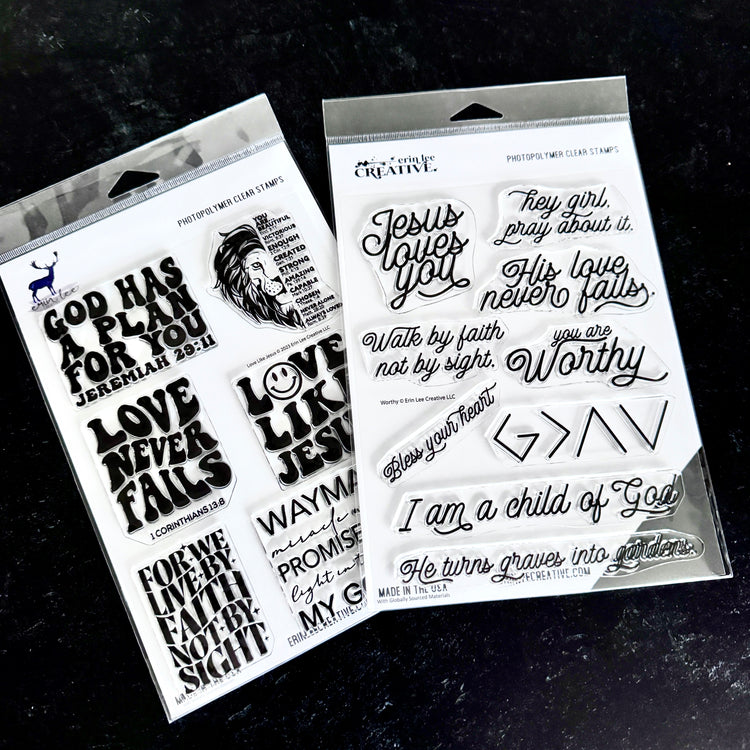 PHOTOPOLYMER CLEAR STAMPS
erin lee
GOD HAS
A PLAN
FOR YOU
JEREMIAH 29:11
YOU
ARE
BEAUTIFUL
VICTORIOUS
ENOUGH
CREATED
STRONG
AMAZING
CAPABLE
CHOSEN
NEVER ALONE
ALWAYS LOVED
Love Like Jesus © 2023 Erin Lee Creative LLC
LOVE
NEVER
FAILS
1 CORINTHIANS 13:8
LOVE
LIKE
JESU
FOR WE
LIVE BY
FAITH
NOT BY
SIGHT
WAYMA
miracle
PROMISE
light in t
MY GO
MADE IN THE USA
ERINLEECREATIVE.C
erin lee
CREATIVE.
PHOTOPOLYMER CLEAR STAMPS
Jesus
loves
you
hey girl,
pray about it.
His love
never fails.
Walk by faith
not by sight.
you are
Worthy
Worthy © Erin Lee Creative LLC
Bless your heart
G>ΛV
I am a child of God
He turns graves into gardens.
MADE IN THE USA
With Globally Sourced Materials
CREATIVE.COM